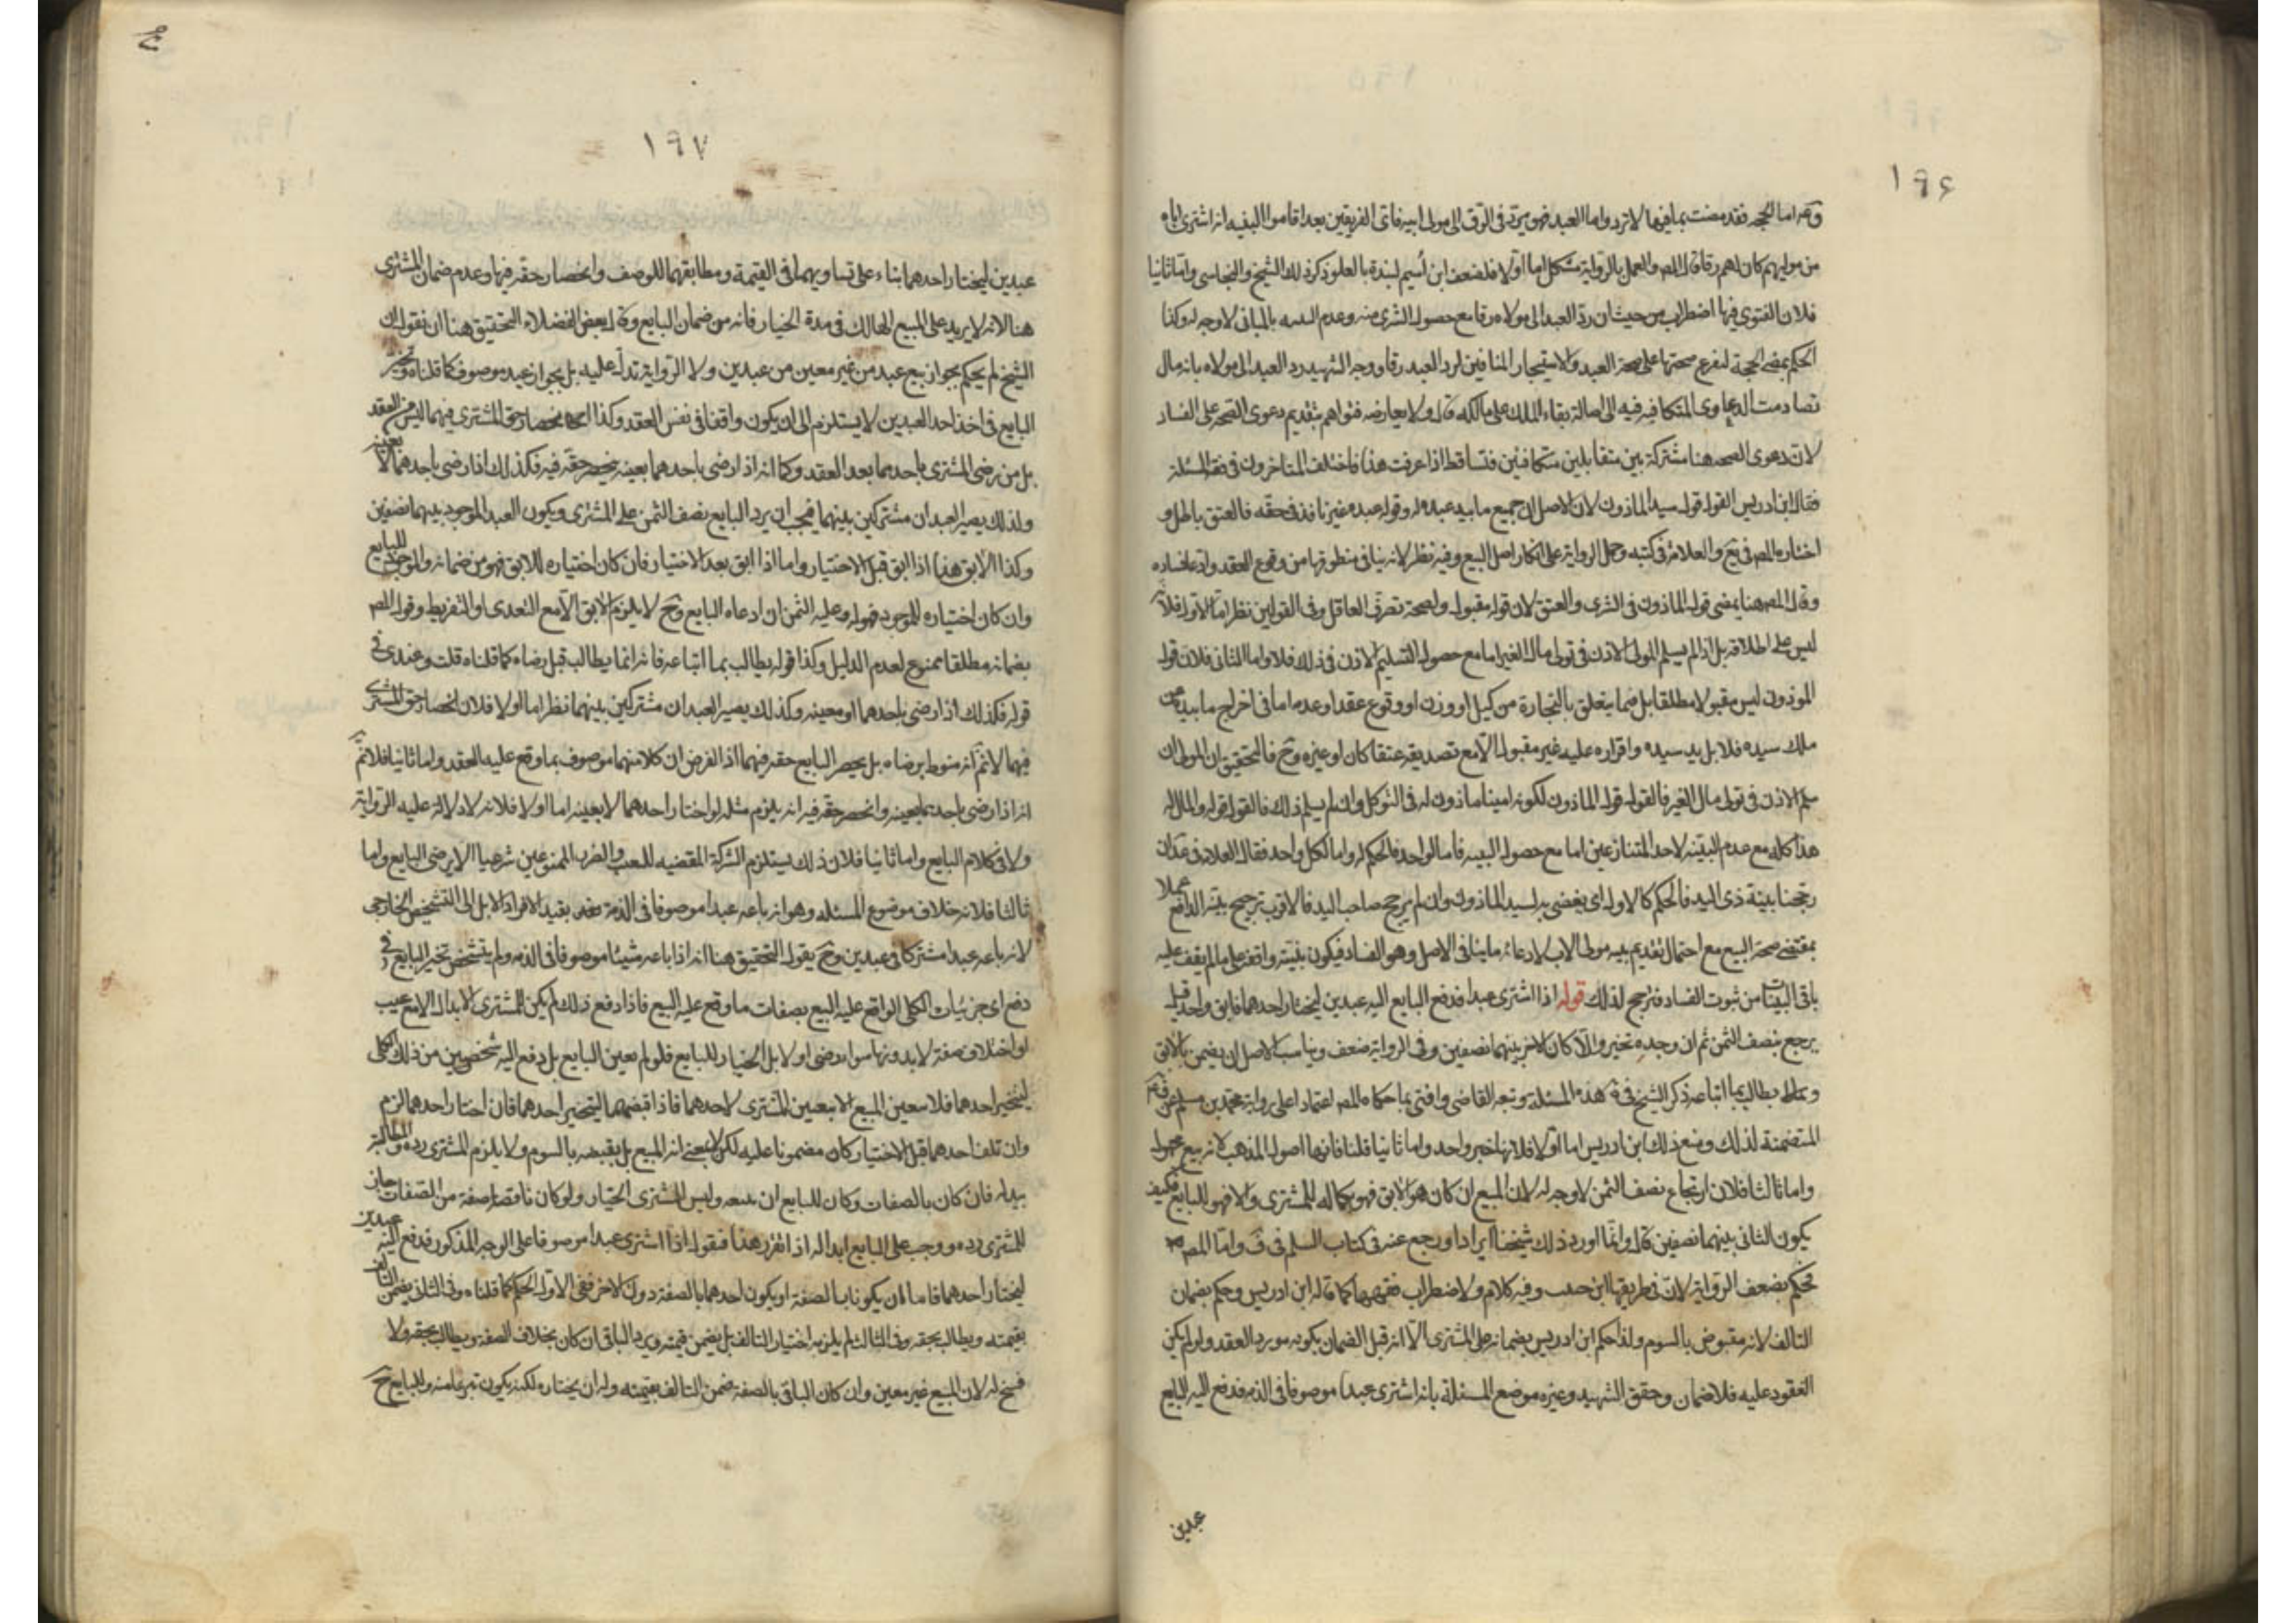 ١٩۶
وجه اما الحجه فقد مضت بما فيها لا ترد واما العبد فهو يرد فى الرق الى مولى ابيه فاى الفريقين بعد اقاموا البينه انه اشترى اباه
من مواليهم كان لهم رقا قال المص والعمل بالرواية مشكل اما اولا فلضعف ابن أُسيم لبندة بالعلو ذكر ذلك الشيخ والنجاسى واما ثانيا
فلان الفتوى فيها اضطراب من حيث ان ردّ العبد الى مولاه رقا مع حصول الشرى منه وعدم البينه بالمنافى لا وجه له وكذا
الحكم بمضى الحجة لتفرع صحتها على صحة العبد والاستيجار المنافين لرد العبد رقا ووجه الشهيد رد العبد الى مولاه بانه مال
تصادمت الدعاوى المتكافيه فيه الى اصالة بقاء الملك على مالكه قال ولا يعارضه فتواهم بتقديم دعوى الصحة على الفساد
لان دعوى الصحه هنا مشتركة بين متقابلين متكافئين فتساقطا اذا عرفت هذا فاختلف المتاخرون فى فقه المسئلة
فقال ابن ادريس القول قول سيد الماذون لان الاصل ان جميع ما بيد عبده له وقول عبده غير نافذ فى حقه فالعتق باطل و
اختاره المص فى يع والعلامة فى كتبه وحمل الرواية على انكار اصل البيع وفيه نظر لانه ينافى منطوقها من وقوع العقد وادعا فساده
وقال المص هنا يمضى قول الماذون فى الشرى والعتق لان قوله مقبول ولصحة تصرف العاقل وفى القولين نظر اما الاول فلانه
ليس على اطلاقه بل اذا لم يسلم المولى الاذن فى تولى مال الغير اما مع حصول التسليم الاذن فى ذلك فلا واما الثانى فلان قول
الموذون ليس مقبولا مطلقا بل فيما يتعلق بالتجارة من كيل او وزن او وقوع عقد او عدمه اما فى اخراج ما بيده من
ملك سيده فلا بل يد سيده واقراره عليه غير مقبول الا مع تصديقه عتقا كان او غيره وح فالتحقيق ان المولى ان
سلم الاذن فى تولى مال الغير فالقول قول الماذون لكونه امينا ماذون له فى التوكل وان لم يسلم ذلك فالقول قوله والمال له
هذا كله مع عدم البينه لاحد المتنازعين اما مع حصول البينه فاما لواحد فالحكم له واما لكل واحد فقال العلامة فى عد ان
رجحنا بينة ذى اليد فالحكم كالاول اى يغضى به لسيد الماذون وان لم يرجح صاحب اليد فالاقرب ترجيح بينة الدافع عملا
بمقتضى صحة البيع مع احتمال تقديم بينه مولى الاب لادعائه ما ينافى الاصل وهو الفساد فيكون بينته واقفة على ما لم يقف عليه
باقى البينات من ثبوت الفساد فترجح لذلك قوله اذا اشترى عبدا فدفع البايع اليه عبدين ليختار احدهما فابق واحد قيل
يرجع بنصف الثمن ثم ان وجده تخير والا كان الاخر بينهما نصفين وفى الرواية ضعف ويناسب الاصل ان يضمن بالابق
ويطالب بما ابتاعه ذكر الشيخ فى هذه المسئلة وتبعه القاضى وافتى بما حكاه المص اعتمادا على رواية محمد بن مسلم عن
المتضمنة لذلك ومنع ذلك ابن ادريس اما اولا فلانها خبر واحد واما ثانيا فلمنافاتها اصول المذهب لانه بيع مجهول
واما ثالثا فلان ارتجاع نصف الثمن لا وجه له لان المبيع ان كان هو الابق فهو بكماله للمشترى والا فهو للبايع فكيف
يكون الثانى بينهما نصفين قال وانما اورد ذلك شيخنا ايرادا ورجع عنه فى كتاب السلم فى ف واما المص
فحكم بضعف الرواية لان فى طريقها ابن حبيب وفيه كلام ولاضطراب فقهها كما قاله ابن ادريس وحكم بضمان
التالف لانه مقبوض بالسوم ولذا حكم ابن ادريس بضمانه على المشترى الا انه قبل الضمان بكونه مورد العقد ولو لم يكن
المعقود عليه فلا ضمان وحقق الشهيد وغيره موضع المسئلة بانه اشترى عبدا موصوفا فى الذمه فدفع اليه البايع
عبدين
١٩٧
عبدين ليختار احدهما بناء على تساويهما فى القيمة ومطابقهما للوصف وانحصار حقه فيها وعدم ضمان المشترى
هنا لانه لا يزيد على المبيع الهالك فى مدة الخيار فانه من ضمان البايع وقال بعض الفضلاء التحقيق هنا ان نقول ان
الشيخ لم يحكم بجواز بيع عبد من غير معين من عبدين ولا الرواية تدل عليه بل بجواز عبد موصوف كما قلناه وتخير
البايع فى اخذ احد العبدين لا يستلزم الى ان يكون واقفا فى نفس العقد وكذا انحصار حق المشترى فيهما ليس من العقد
بل من رضى المشترى باحدهما بعد العقد وكما انه اذا رضى باحدهما بعينه ينحصر حقه فيه فكذلك اذا رضى باحدهما لا بعينه
ولذلك يصير العبدان مشتركين بينهما فيجب ان يرد البايع نصف الثمن على المشترى ويكون العبد الموجود بينهما نصفين
وكذا الابق هذا اذا ابق قبل الاختيار واما اذا ابق بعد الاختيار فان كان اختياره للابق فهو من ضمانه والموجود للبايع
وان كان اختياره للموجود فهو له وعليه الثمن ان ادعاه البايع وح لا يلزم الابق الا مع التعدى او التفريط وقول المص
بضمانه مطلقا ممنوع لعدم الدليل وكذا قوله يطالب بما ابتاعه فانه انما يطالب قبل رضاه كما قلناه قلت وعندى فى
قوله فكذلك اذا رضى باحدهما او معينه وكذلك يصير العبدان مشتركين بينهما نظر اما اولا فلان انحصار حق المشترى
فيهما لانم انه منوط برضاه بل بحصر البايع حقه فيهما اذا الفرض ان كلا منهما موصوف بما وقع عليه العقد واما ثانيا فلانم
انه اذا رضى باحدهما بعينه وانحصر حقه فيه انه يلزم مثله لو اختار احدهما لا بعينه اما اولا فلانه لا دلاله عليه الرواية
ولا فى كلام البايع واما ثانيا فلان ذلك يستلزم الشركة المقتضيه للعيب والضرب الممنوعين شرعيا الا برضى البايع واما
ثالثا فلانه خلاف موضوع المسئله وهو انه باعه عبدا موصوفا فى الذمة بقيد الافراد لا بل الى التشخيص الخارجى
لانه باعه عبدا مشتركا فى عبدين وح يقول التحقيق هنا انه اذا باعه شيئا موصوفا فى الذمه ولم يتشخص تخير البايع فى
دفع اى جزئيات الكلى الواقع عليه البيع بصفات ما وقع عليه البيع فاذا دفع ذلك لم يكن للمشترى الابدال الا مع عيب
او اختلاف صفة لا بد ونها سوا رضى او لا بل الخيار للبايع فلو لم يعين البايع بل دفع اليه شخصين من ذلك الكلى
ليتخير احدهما فلا يتعين المبيع الا بتعيين المشترى لاحدهما فاذا قبضهما ليتخير احدهما فان اختار احدهما لزم
وان تلف احدهما قبل الاختيار كان مضمونا عليه لكن لا بمعنى انه المبيع بل بقبضه بالسوم ولا يلزم المشترى رده والمطالبة
ببدله فان كان بالصفات وكان للبايع ان يمنعه وليس للمشترى الخيار ولو كان ناقصا صفة من الصفات جاز
للمشترى رده ووجب على البايع ابداله اذا تقرر هذا فنقول اذا اشترى عبدا موصوفا على الوجه المذكور فدفع اليه عبدين
ليختار احدهما فاما ان يكونا بالصفة او يكون احدهما بالصفة دون الاخر ففى الاول الحكم كما قلناه وفى الثانى يضمن التالف
بقيمته ويطالب بحقه وفى الثالث لم يلزمه اختيار التالف بل يضمن قيمته ويرد الباقى ان كان بخلاف الصفه ويطالب بحقه ولا
فسخ له لان المبيع غير معين وان كان الباقى بالصفة ضمن التالف بقيمته وله ان يختاره لكنه يكون تبرعا منه وللبايع ح